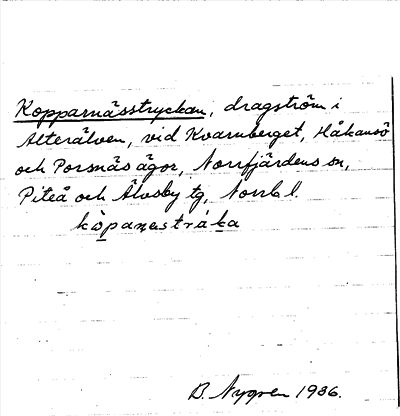 Kopparnässtryckan, dragström i
Alterälven, vid Kvarnberget, Håkansö
och Porsnäs ägor, Norrfjärdens sn,
Piteå och Älvsby tg, Norrb l.
kòpanastráka
B. Nygren 1936.